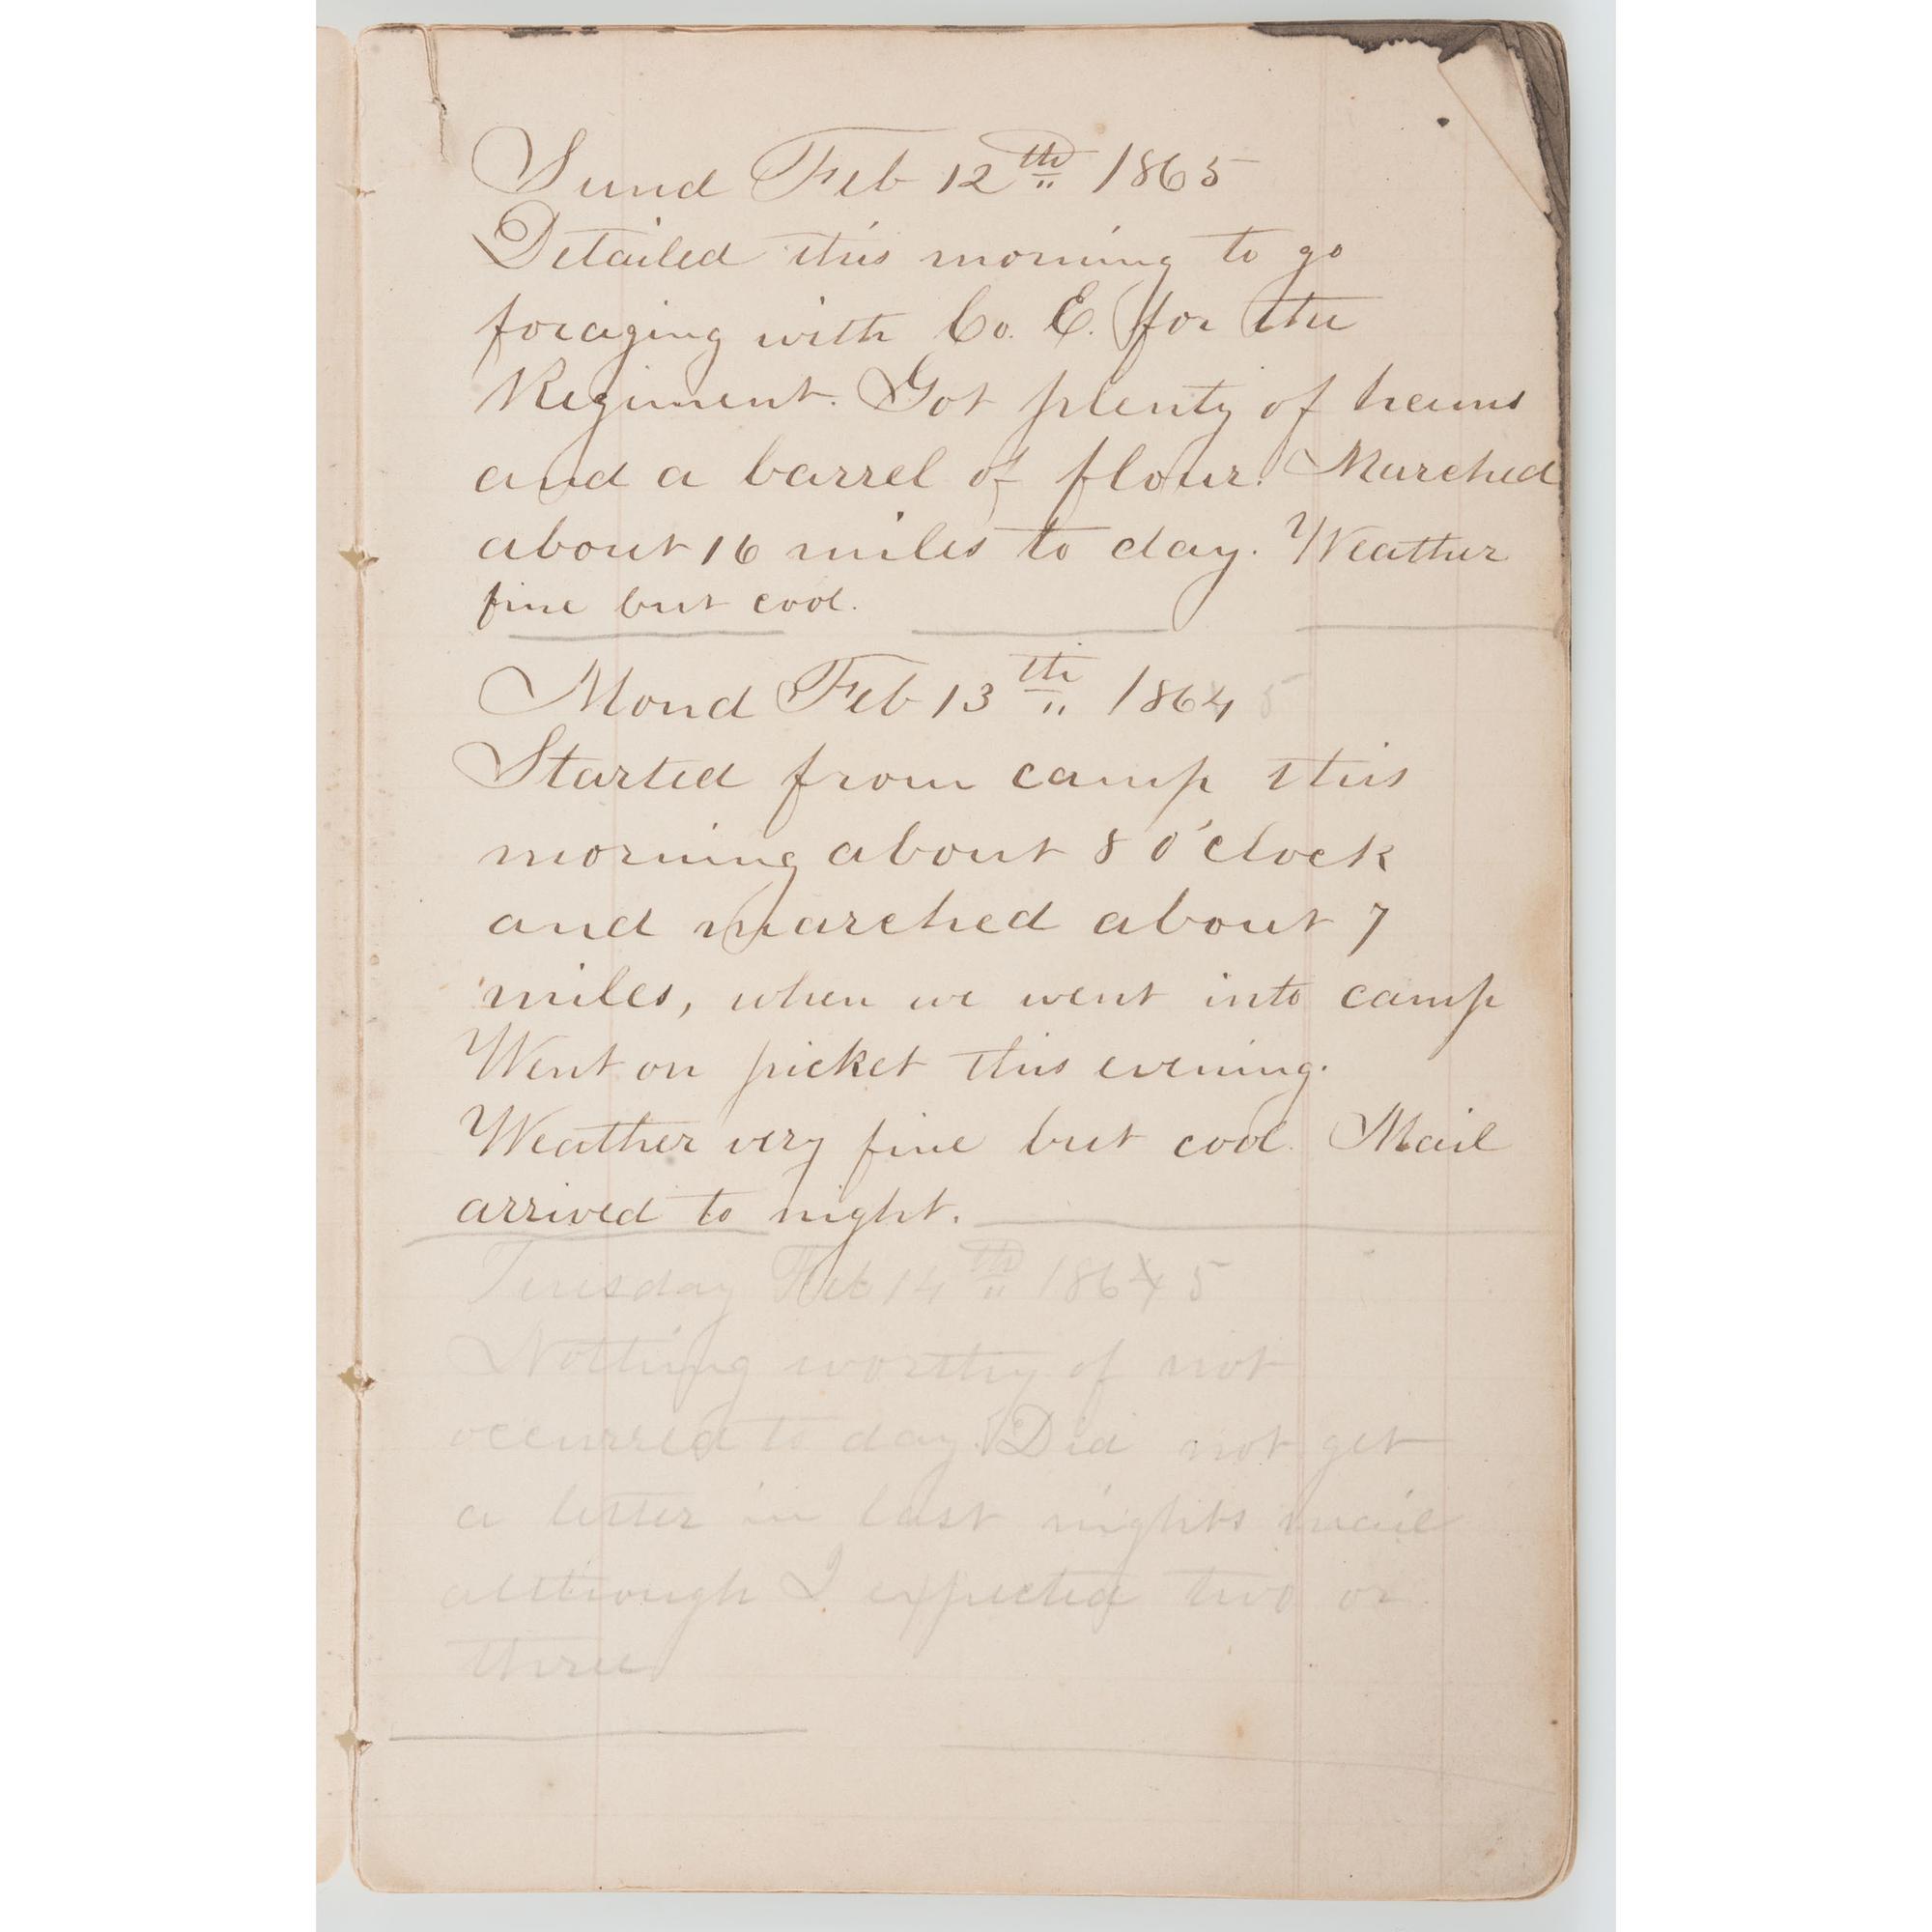 Sund Feb 12th 1865
Detailed this morning to go
foraging with Co. E. for the
Regiment. Got plenty of hams
and a barrel of flour. Marched
about 16 miles to day. Weather
fine but cool.
Mond Feb 13th 1864 5
Started from camp this
morning about 8 o'clock
and marched about 7
miles, when we went into camp
Went on picket this evening.
Weather very fine but cool. Mail
arrived to night.
Tuesday Feb 14th 1864 5
Nothing worthy of not
occurred to day. Did not get
a letter in last nights mail
although I expected two or
three